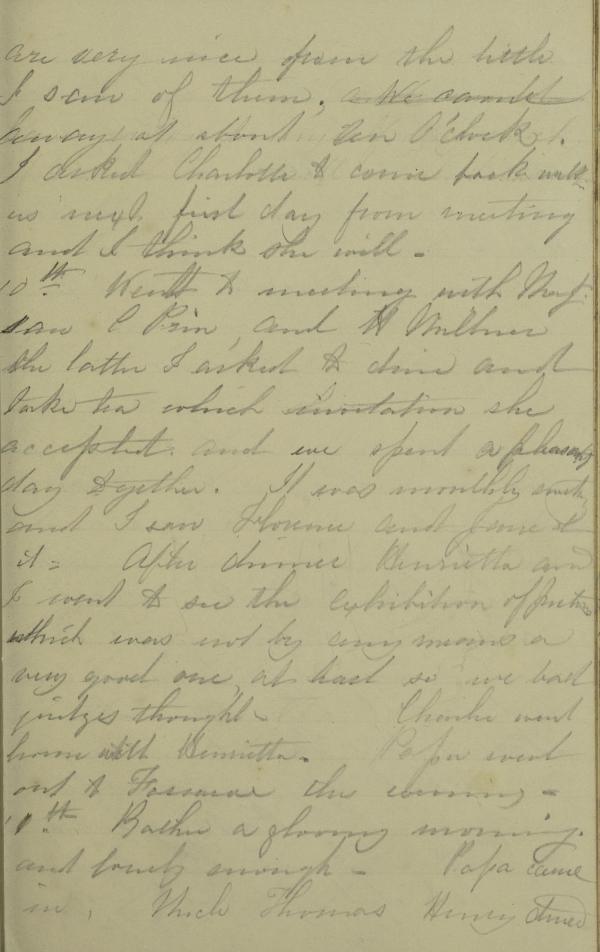 are very nice from the little
I saw of them, We came
away at about ten O'clock.
I asked Charlotte to come back with
us next first day from meeting
and I think she will -
10th Went to meeting with
C Prin, and H
the latter I asked to dine and
take tea which invitation she
accepted and we spent a pleasant
day together. It was monthly meeting
and I saw Florence and Jane at
it - After dinner Henrietta and
I went to see the exhibition of
which was not by any means a
very good one, at least so we bad
judges thought - Charlie went
home with Henrietta. Papa went
out to the evening -
11th Rather a gloomy morning.
and lonely enough - Papa came
in, Uncle Thomas Henry dined